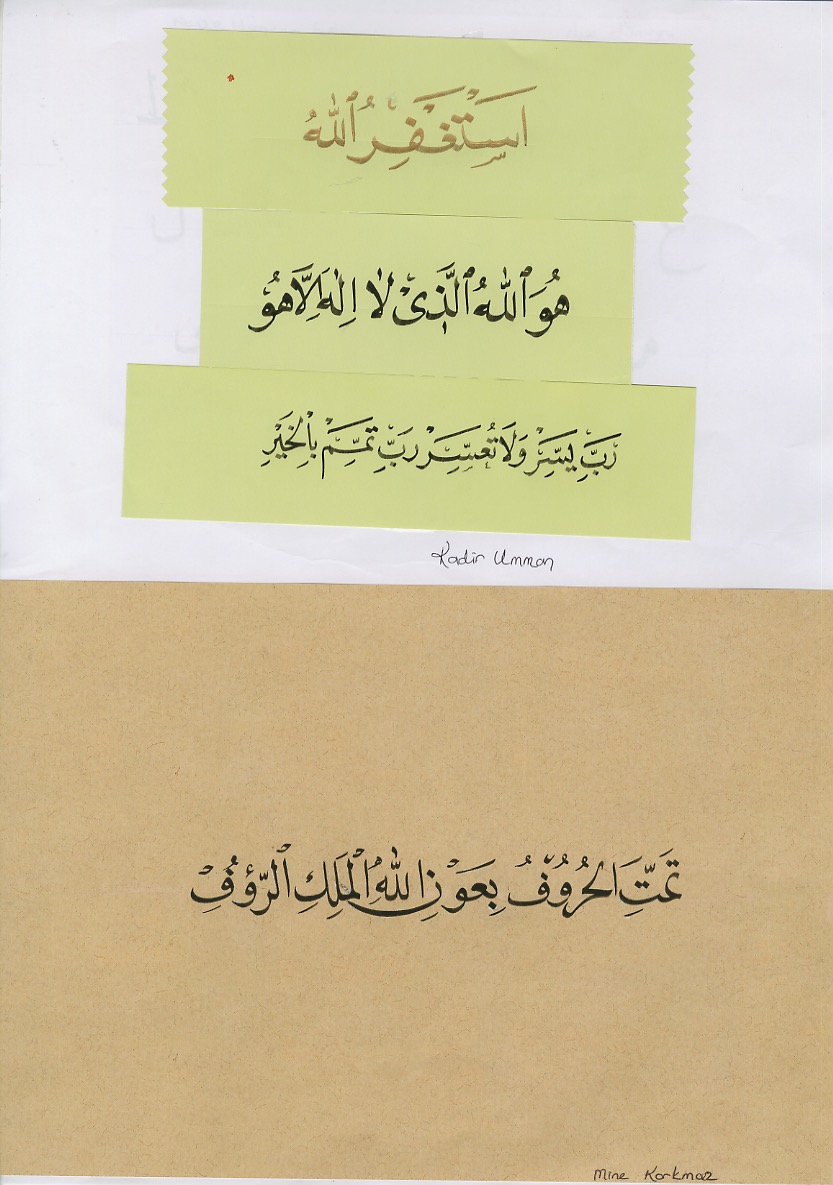 اَسْتَغْفِرُ ٱللهُ
هُوَ ٱللهُ ٱلَّذِىْ لَا اِلٰهَ اِلَّا هُوْ
رَبِّ يَسِّرْ وَلَا تُعَسِّرْ رَبِّ تَمِّمْ بِالْخَيْرِ
Kadir Umman
تَمَّتِ الْحُرُوُفُ بِعَوْنِ اللهِ الْمَلِكِ الرَّؤُفِ
Mine Korkmaz